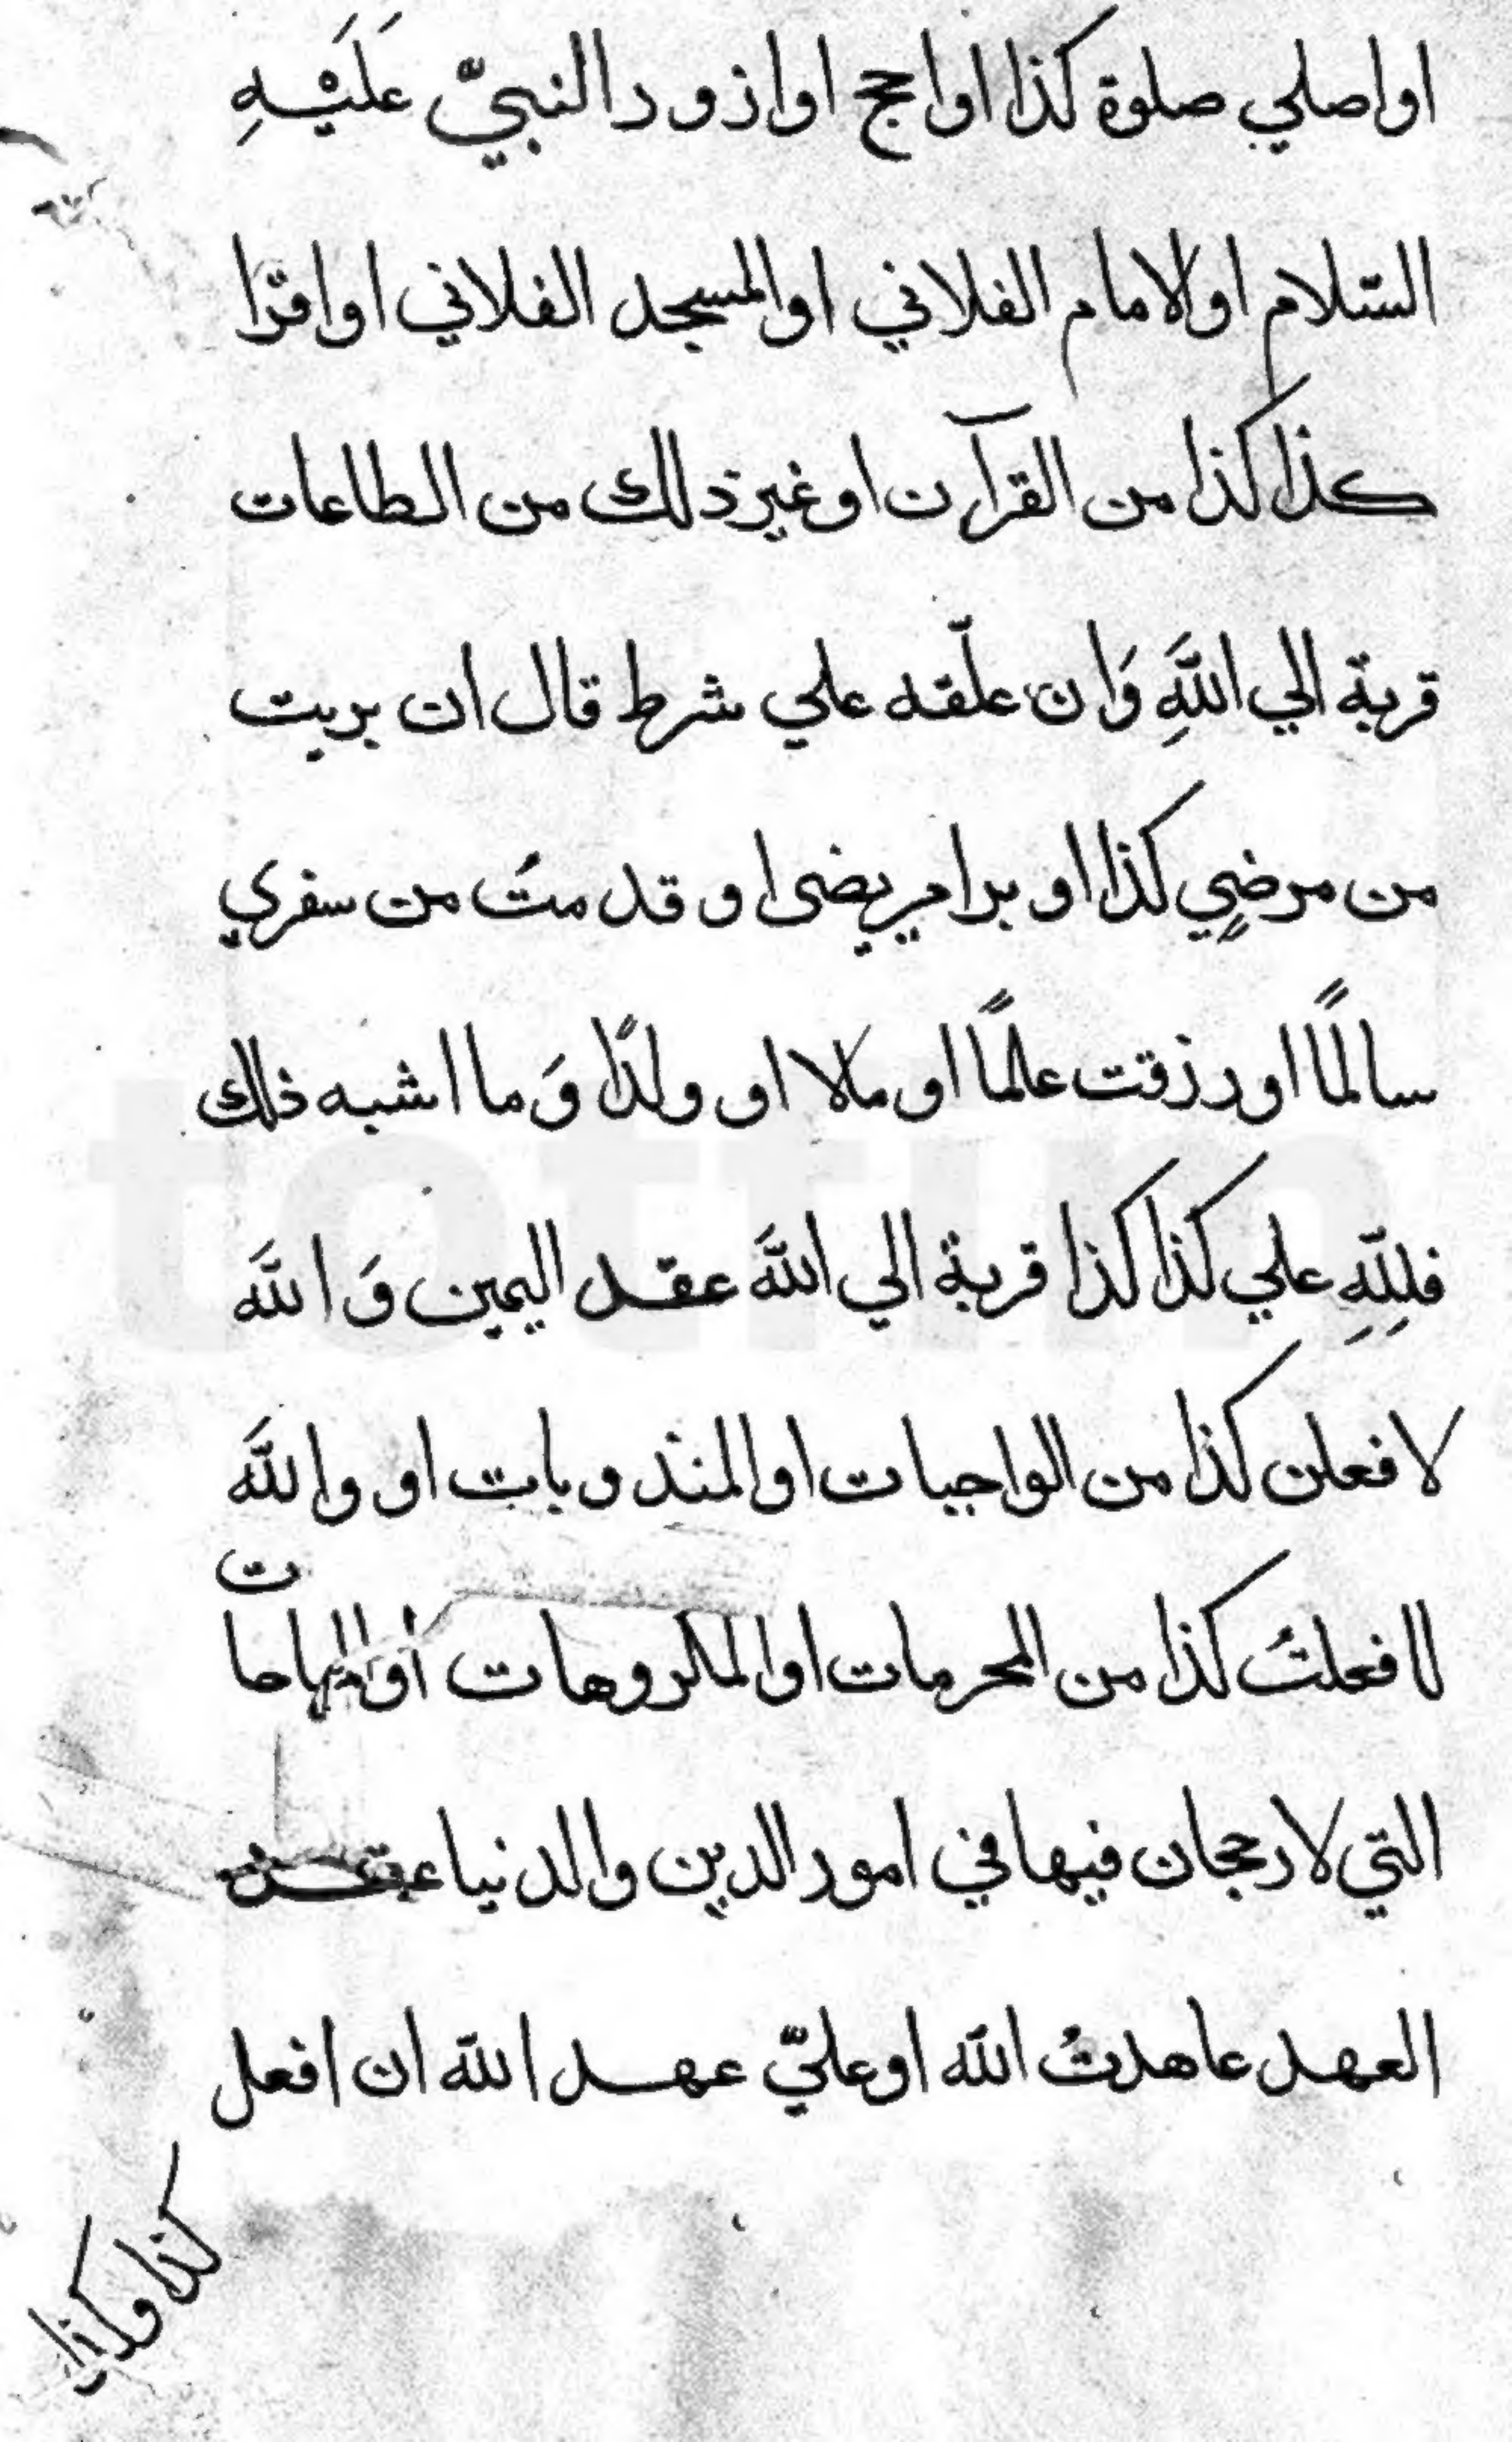 او اصلي صلوة كذا او احج او ازور النبيّ عَلَيْهِ
السّلام او الامام الفلاني او المسجد الفلاني او اقرا
كذا كذا من القرآن او غير ذلك من الطاعات
قربة الي اللَّهِ وَان علّقه علي شرط قال ان بريت
من مرضي كذا او برا مريضى او قدمتُ من سفري
سالمًا او رزقت علمًا او مالا او ولدًا وَما اشبه ذلك
فلِلّهِ علي كذا كذا قربة الي اللَّه عقد اليمين وَاللَّه
لافعلن كذا من الواجبات او المندوبات او واللَّه
لا فعلتُ كذا من المحرمات او المكروهات أو المباحات
التي لا رجحان فيها في امور الدين والدنيا عقد
العهد عاهدتُ اللّه او عليّ عهد اللّه ان افعل
كذا وكذا